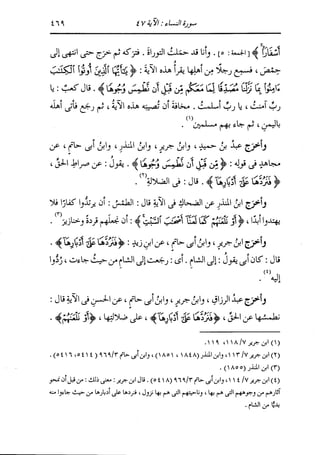 سورة النساء : الآية ٤٧
٤٦٩
أَسْفَارًا﴾ [الجمعة: ٥] . وأنا قد حملت التوراة . فتركه ثم خرج حتى انتهى إلى
حمص ، فسمع رجلًا من أهلها يقرأ هذه الآية : ﴿يَا أَيُّهَا الَّذِينَ أُوتُوا الْكِتَابَ
آمِنُوا بِمَا نَزَّلْنَا مُصَدِّقًا لِمَا مَعَكُمْ مِنْ قَبْلِ أَنْ نَطْمِسَ وُجُوهًا﴾ . قال كعب : يا
رب آمنت ، يا رب أسلمت . مخافة أن تصيبه هذه الآية ، ثم رجع فأتى أهله
باليمن ، ثم جاء بهم مسلمين (١) .
وأخرج عبد بن حميد ، وابن جرير ، وابن المنذر ، وابن أبى حاتم ، عن
مجاهد فى قوله : ﴿مِنْ قَبْلِ أَنْ نَطْمِسَ وُجُوهًا﴾ . يقول : عن صراط الحق ،
﴿فَنَرُدَّهَا عَلَى أَدْبَارِهَا﴾ . قال : فى الضلالة (٢) .
وأخرج ابن المنذر عن الضحاك فى الآية قال : الطمس : أن يرتدوا كفارا فلا
يهتدوا أبدا ، ﴿أَوْ نَلْعَنَهُمْ كَمَا لَعَنَّا أَصْحَابَ السَّبْتِ﴾ : أن نجعلهم قردة وخنازير (٣) .
وأخرج ابن جرير ، وابن أبى حاتم ، عن ابن زيد : ﴿فَنَرُدَّهَا عَلَى أَدْبَارِهَا﴾ .
قال : كان أبى يقول : إلى الشام . أى : رجعت إلى الشام من حيث جاءت ، ردوا
إليه (٤) .
وأخرج عبد الرزاق ، وابن جرير ، وابن أبى حاتم ، عن الحسن فى الآية قال :
نطمسها عن الحق ، ﴿فَنَرُدَّهَا عَلَى أَدْبَارِهَا﴾ ، على ضلالتها ، ﴿أَوْ نَلْعَنَهُمْ﴾ .
(١) ابن جرير ٧/ ١١٨، ١١٩ .
(٢) ابن جرير ٧/ ١١٣، وابن المنذر (١٨٤٨، ١٨٥١) ، وابن أبى حاتم ٣/ ٩٦٩ (٥٤١٤، ٥٤١٦) .
(٣) ابن المنذر (١٨٥٥) .
(٤) ابن جرير ٧/ ١١٤، وابن أبى حاتم ٣/ ٩٦٩ (٥٤١٨) . قال ابن جرير : معنى ذلك : من قبل أن نمحو
آثارهم من وجوههم التى هم بها ، وناحيتهم التى هم بها نزول ، فنردها على أدبارها من حيث جاءوا منه
بديًّا من الشام .